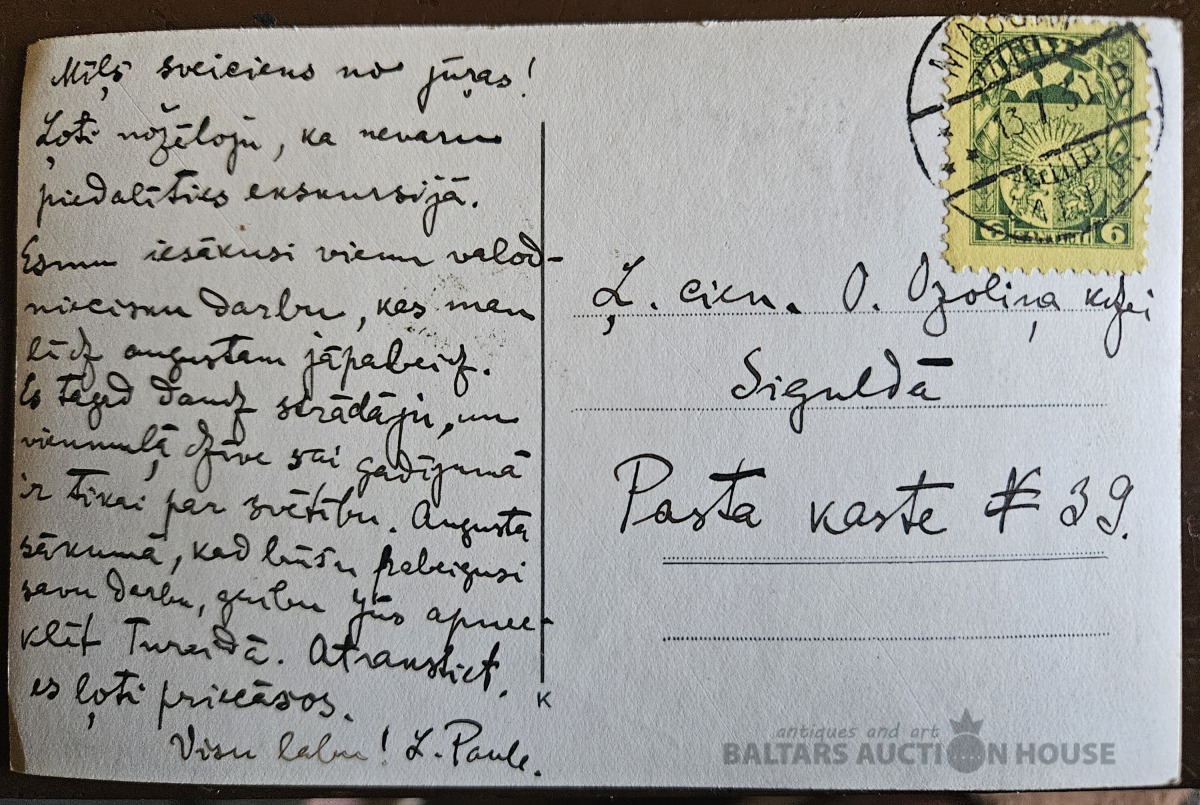 Mīļš sveiciens no jūŗas!
Ļoti nožēloju, ka nevaru
piedalīties ekskursijā.
Esmu iesākusi vienu valod-
niecisku darbu, kas man
līdz augustam jāpabeidz.
Es tagad daudz strādāju, un
vienmuļā dzīve šai gadījumā
ir tikai par svētību. Augusta
sākumā, kad būšu pabeigusi
savu darbu, gribu Jūs apmek-
klēt Turaidā. Atrakstiet,
es ļoti priecāšos.
Visu labu! L. Paule.
K
13 7 31 B
6 6
Ļ. cien. O. Ozoliņa kdzei
Siguldā
Pasta kaste # 39.
antiques and art
BALTARS AUCTION HOUSE